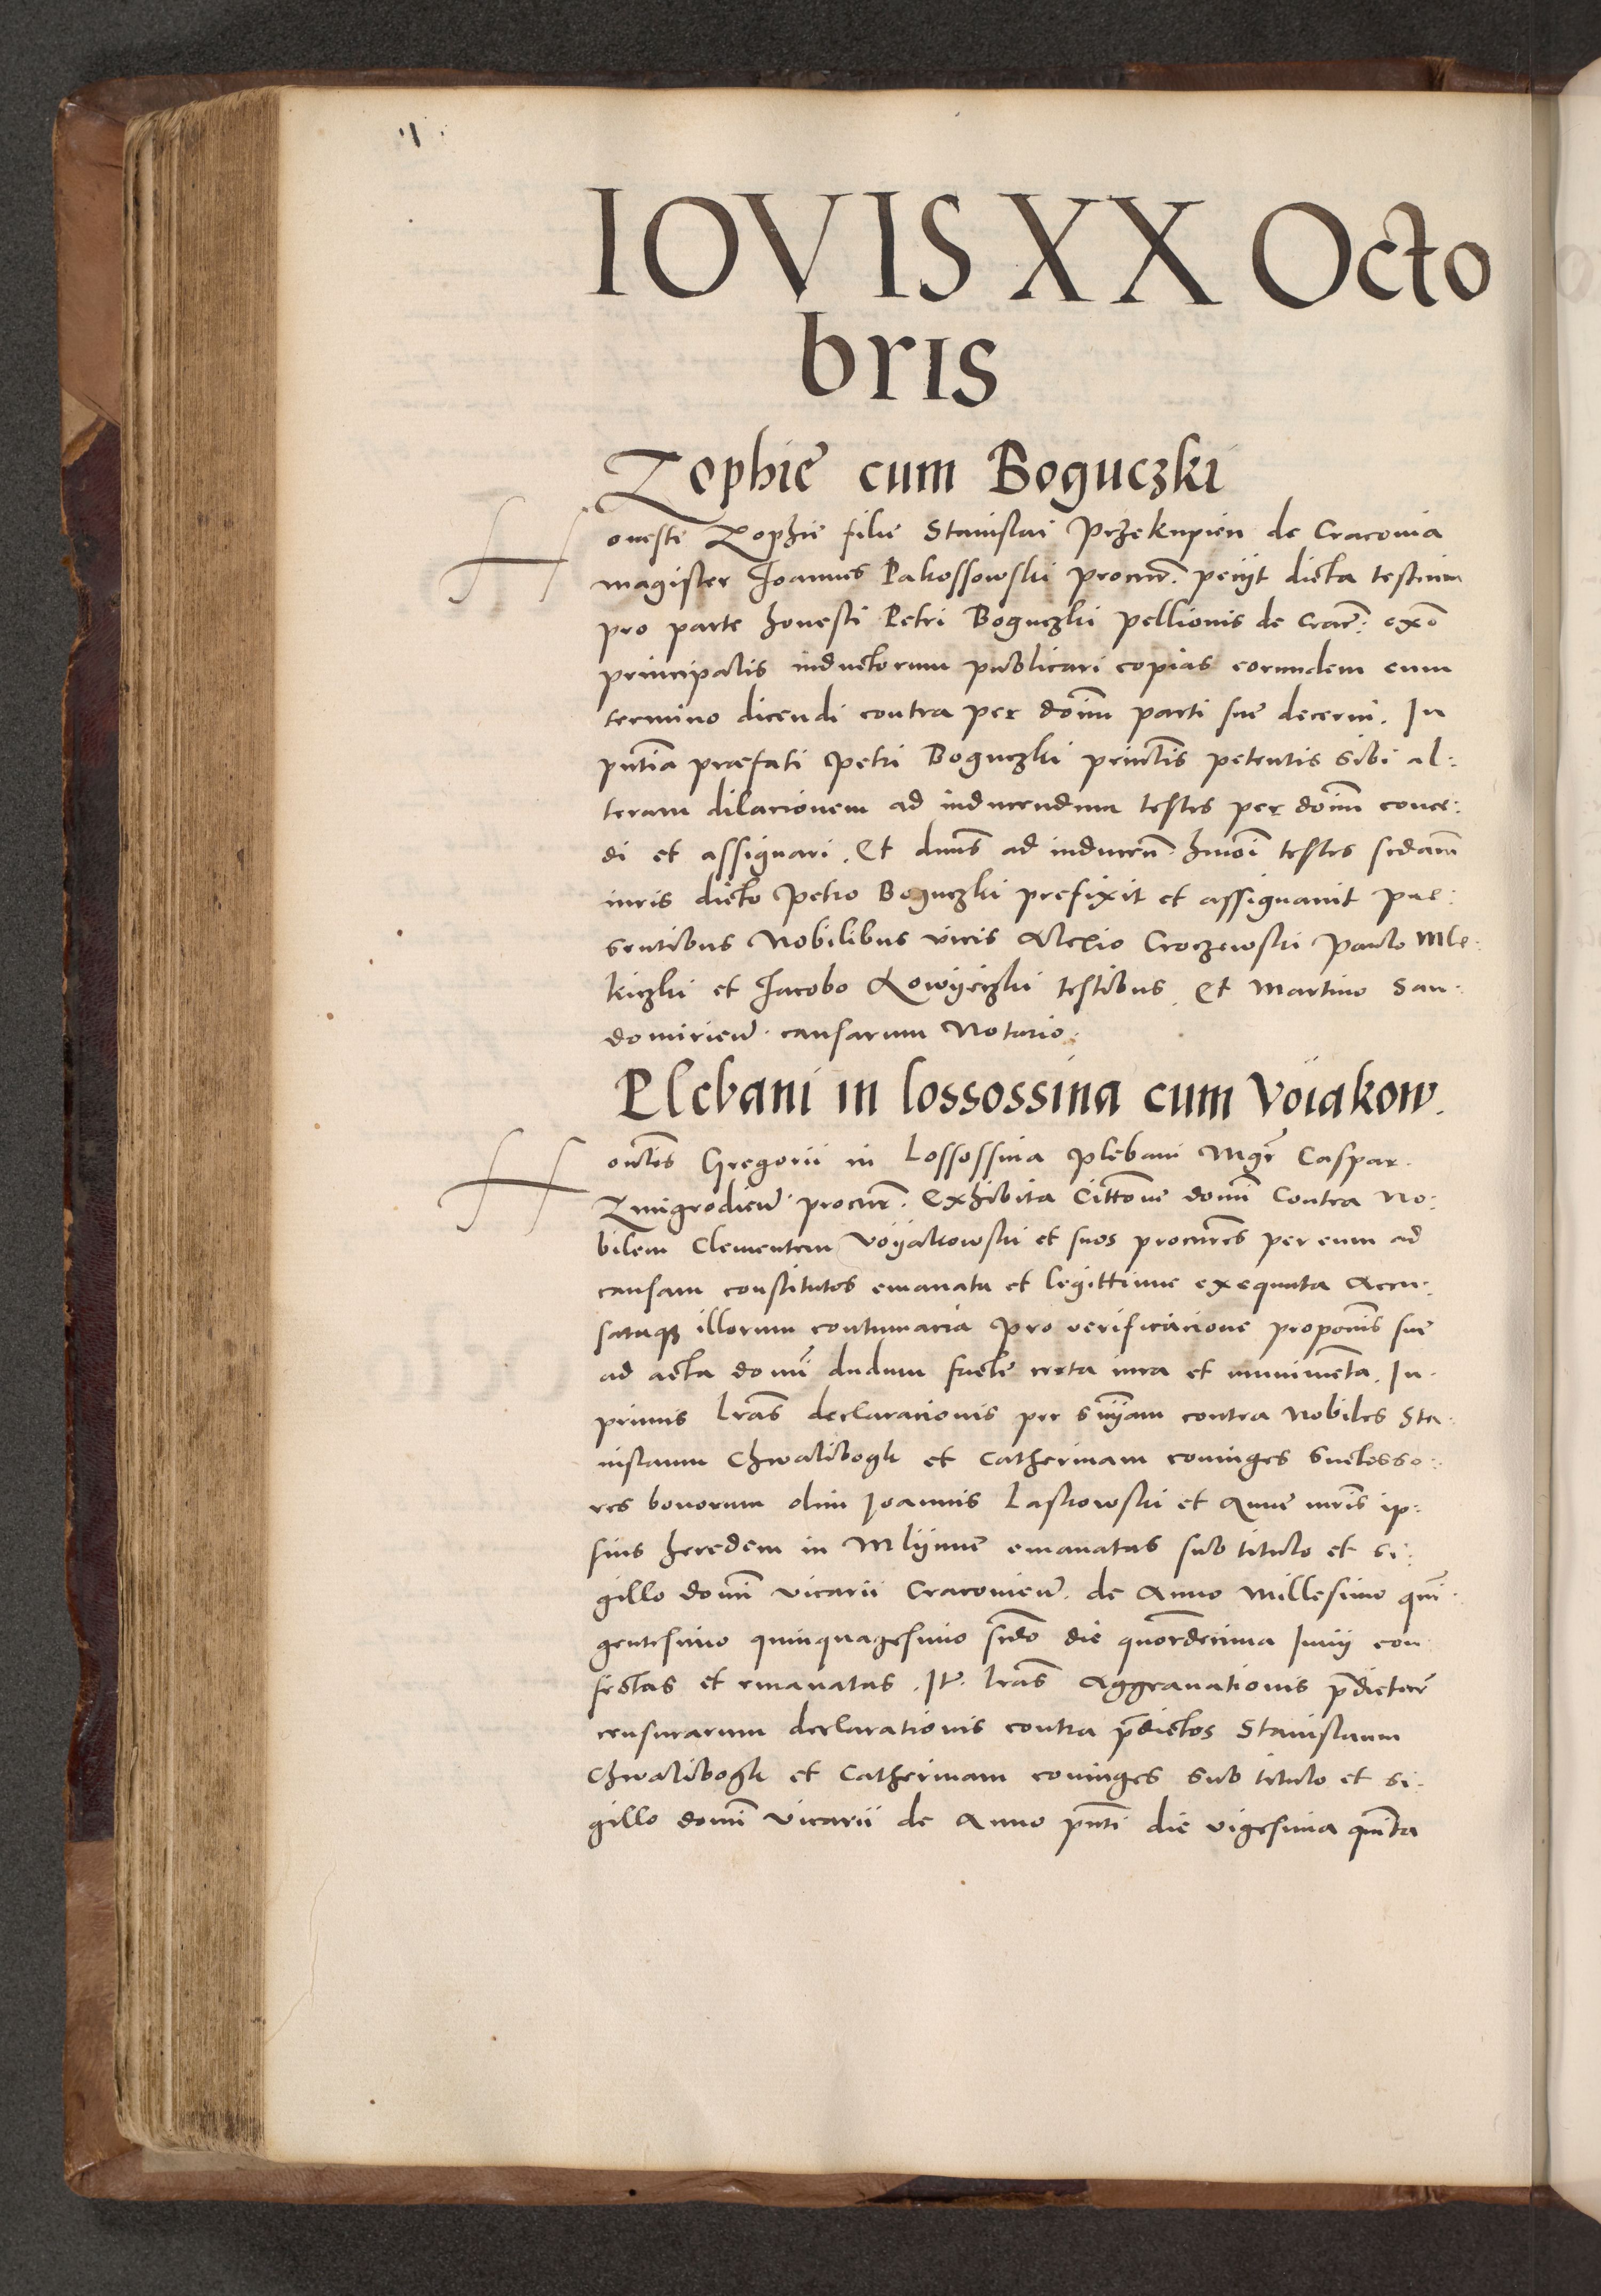 IOVIS XX Octo
bris
Zophie cum Boguczki
Honeste Zophie filie Stanislai Przekupien de Cracovia
magister Joannes Pakossowski procur. peciit dicta testium
pro parte honesti Petri Boguczki pellionis de Crac:
principalis inductorum publicari copias eorundem cum
termino dicendi contra per dom̄ parti sue decerni. In
pn̄tia praefati Petri Boguczki petentis sibi al:
teram dilacionem ad inducendum testes per dom̄ conce:
di et assignari. Et dn̄us ad inducen̄. testes
iuris dicto Petro Boguczki prefixit et assignavit prae:
sentibus Nobilibus viris Alexio Croczewski Paulo Mle:
kiczki et Jacobo Lowyeczki testibus. Et Martino San:
domirien̄. causarum Notario.
Plebani in lossossina cum Voiakow.
Gregorii in Lossossina Plebani Mgr̄ Caspar.
Zmigrodien̄. procur̄. Exhibita Citt̄one dom̄i Contra No:
bilem Clementem Voyakowski et suos per eum ad
causam constitutos emanata et legittime exequuta Accu:
sataqȝ illorum contumacia Pro verificacione sue
ad acta dom̄i dudum facte certa iura et munimenta. In
primis lr̄as declaracionis per contra Nobiles Sta:
nislaum Chwalibogk et Catherinam coniuges Suctesso:
res bonorum olim Joannis Laskowski et Anne ip:
sius heredem in Mlynne emanatas sub titulo et si:
gillo dom̄i vicarii Cracovien̄. de Anno Millesimo qui
gentesimo quinquagesimo die Junii con
fectas et emanatas. It̄. lr̄as Aggravationis p̄dictar̄
censurarum declarationis contra p̄dictos Stanislaum
Chwalibogk et Catherinam coniuges sub titulo et si:
gillo dom̄i Vicarii de Anno pn̄ti die vigesima quinta